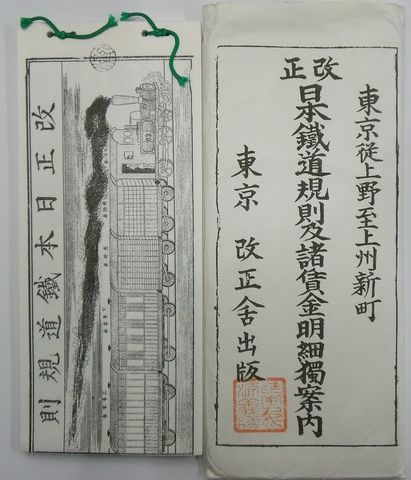 東京従上野至上州新町
改正
日本鐵道規則及諸賃金明細獨案内
東京 改正舎出版
改正日本鐵道規則
103